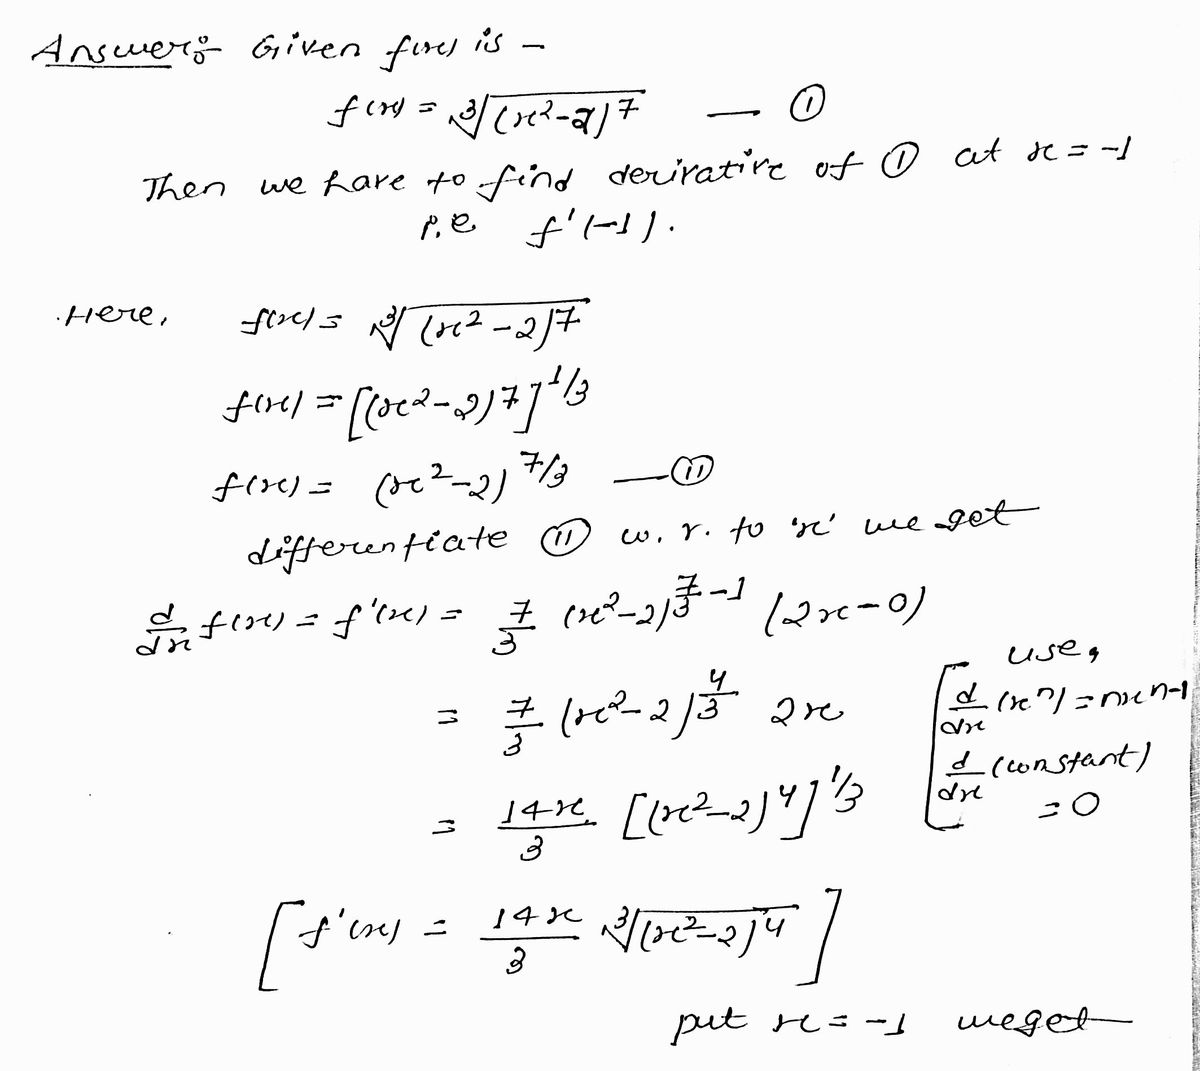 Answer:- Given f(x) is -
f(x) = ∛(x²-2)⁷ — ①
Then we have to find derivative of ① at x = -1
i.e f'(-1).
Here, f(x) = ∛(x²-2)⁷
f(x) = [(x²-2)⁷]^1/3
f(x) = (x²-2)^7/3 — ⑪
differentiate ⑪ w.r. to 'x' we get
d/dx f(x) = f'(x) = 7/3 (x²-2)^(7/3 -1) (2x-0)
= 7/3 (x²-2)^4/3 2x
= 14x/3 [(x²-2)⁴]^1/3
use,
[d/dx (xⁿ) = nxⁿ⁻¹
d/dx (constant)
= 0
[f'(x) = 14x/3 ∛(x²-2)⁴]
put x = -1 we get